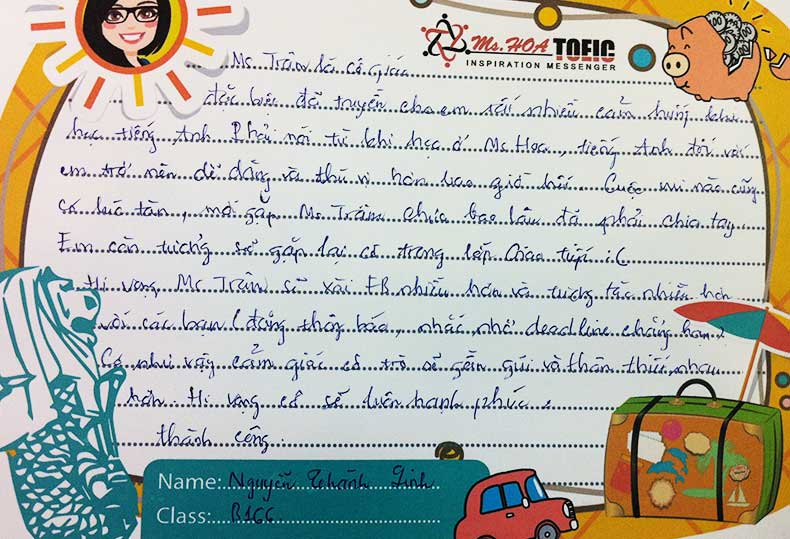 Ms. HOA TOEIC
INSPIRATION MESSENGER
Ms. Trâm là cô giáo
đặc biệt đã truyền cho em rất nhiều cảm hứng khi
học tiếng Anh. Phải nói từ khi học ở Ms Hoa, tiếng Anh đối với
em trở nên dễ dàng và thú vị hơn bao giờ hết. Cuộc vui nào cũng
có lúc tàn, mới gặp Ms Trâm chưa bao lâu đã phải chia tay
Em cần tưởng sẽ gặp lại cô trong lớp Giao tiếp :(
Hi vọng Ms Trâm sẽ xài FB nhiều hơn và tương tác nhiều hơn
với các bạn (đăng thông báo, nhắc nhở deadline chẳng hạn)
Có như vậy cảm giác cô trò sẽ gần gũi và thân thiết nhau
hơn. Hi vọng cô sẽ luôn hạnh phúc,
thành công.
Name: Nguyễn Thành
Class: B166